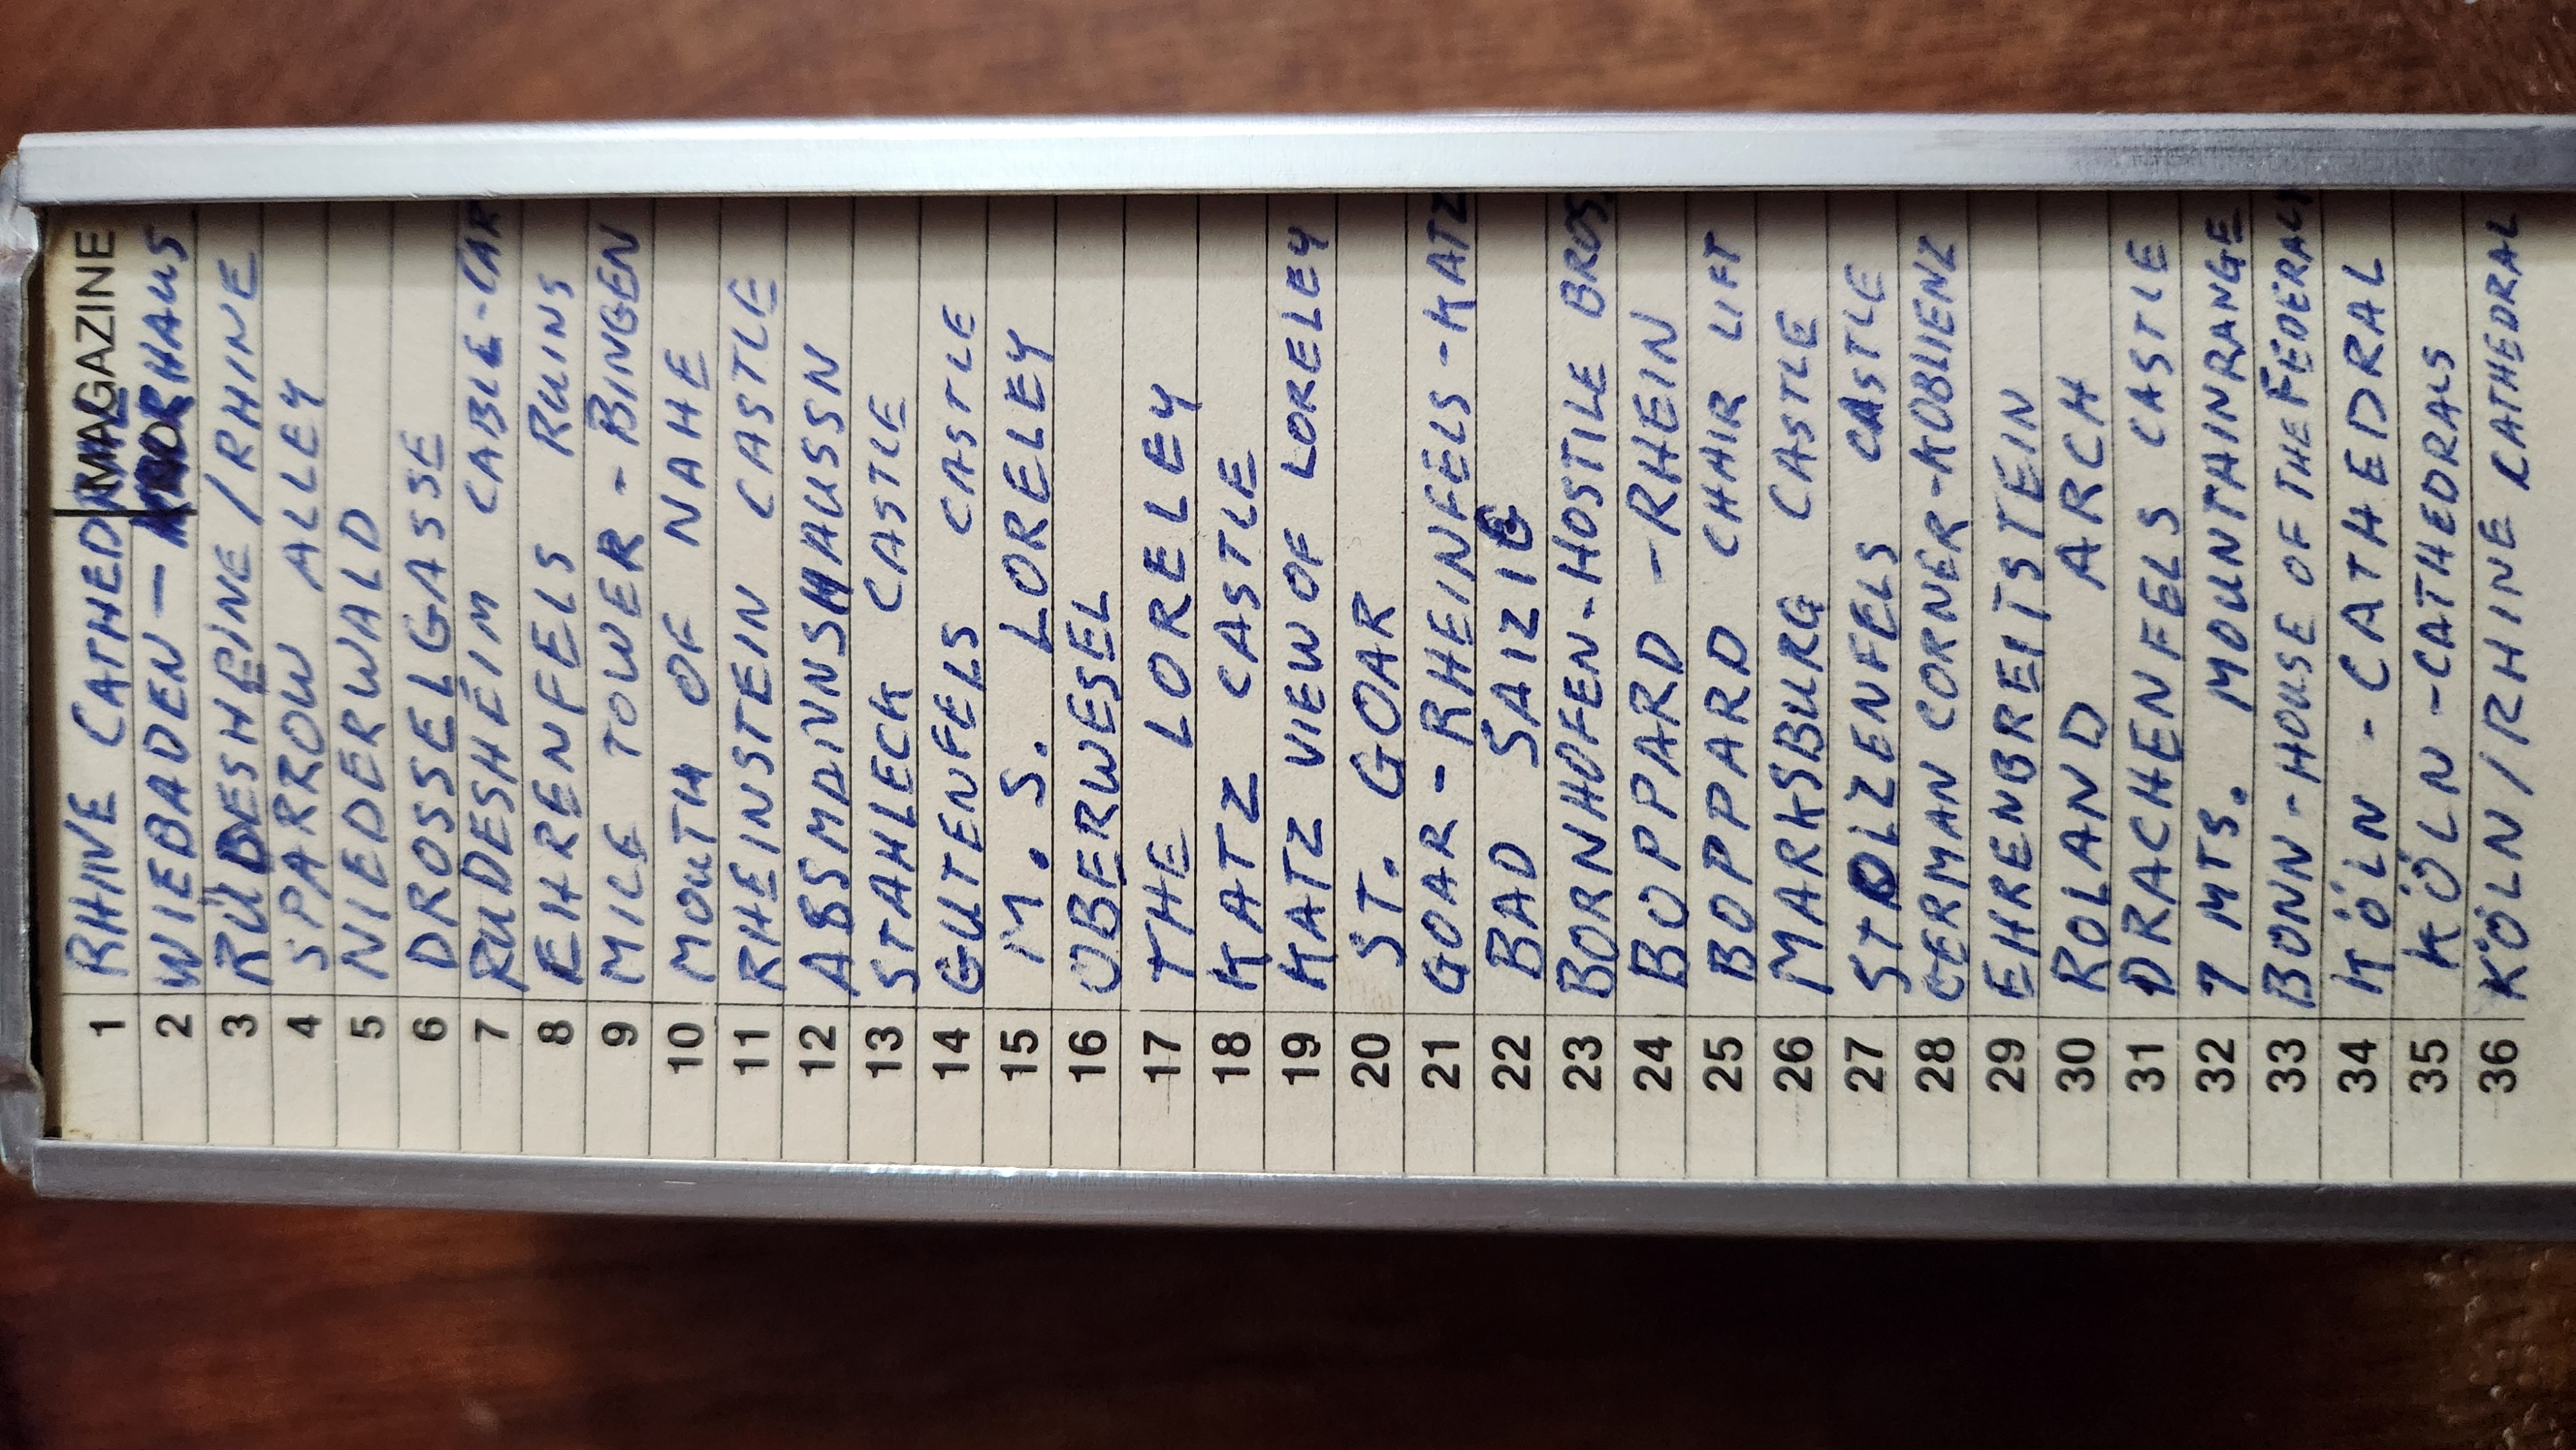 1 RHINE CATHEDRAL MAGAZINE
2 WIEBADEN - KURHAUS NO.
3 RÜDESHEINE / RHINE
4 SPARROW ALLEY
5 NIEDERWALD
6 DROSSELGASSE
7 RUDESHEIM CABLE-CAR
8 EHRENFELS RUINS
9 MICE TOWER - BINGEN
10 MOUTH OF NAHE
11 RHEINSTEIN CASTLE
12 ASSMANNSHAUSSN
13 STAHLECK CASTLE
14 GUTENFELS CASTLE
15 M. S. LORELEY
16 OBERWESEL
17 THE LORELEY
18 KATZ CASTLE
19 KATZ VIEW OF LORELEY
20 ST. GOAR
21 GOAR - RHEINFELS - KATZ
22 BAD SAIZIG
23 BORNHOFEN - HOSTILE BROS.
24 BOPPARD - RHEIN
25 BOPPARD CHAIR LIFT
26 MARKSBURG CASTLE
27 STOLZENFELS CASTLE
28 GERMAN CORNER - KOBLIENZ
29 EHRENBREITSTEIN
30 ROLAND ARCH
31 DRACHENFELS CASTLE
32 7 MTS. MOUNTAINRANGE
33 BONN - HOUSE OF THE FEDERAL
34 KÖLN - CATHEDRAL
35 KÖLN - CATHEDRALS
36 KÖLN / RHINE CATHEDRAL